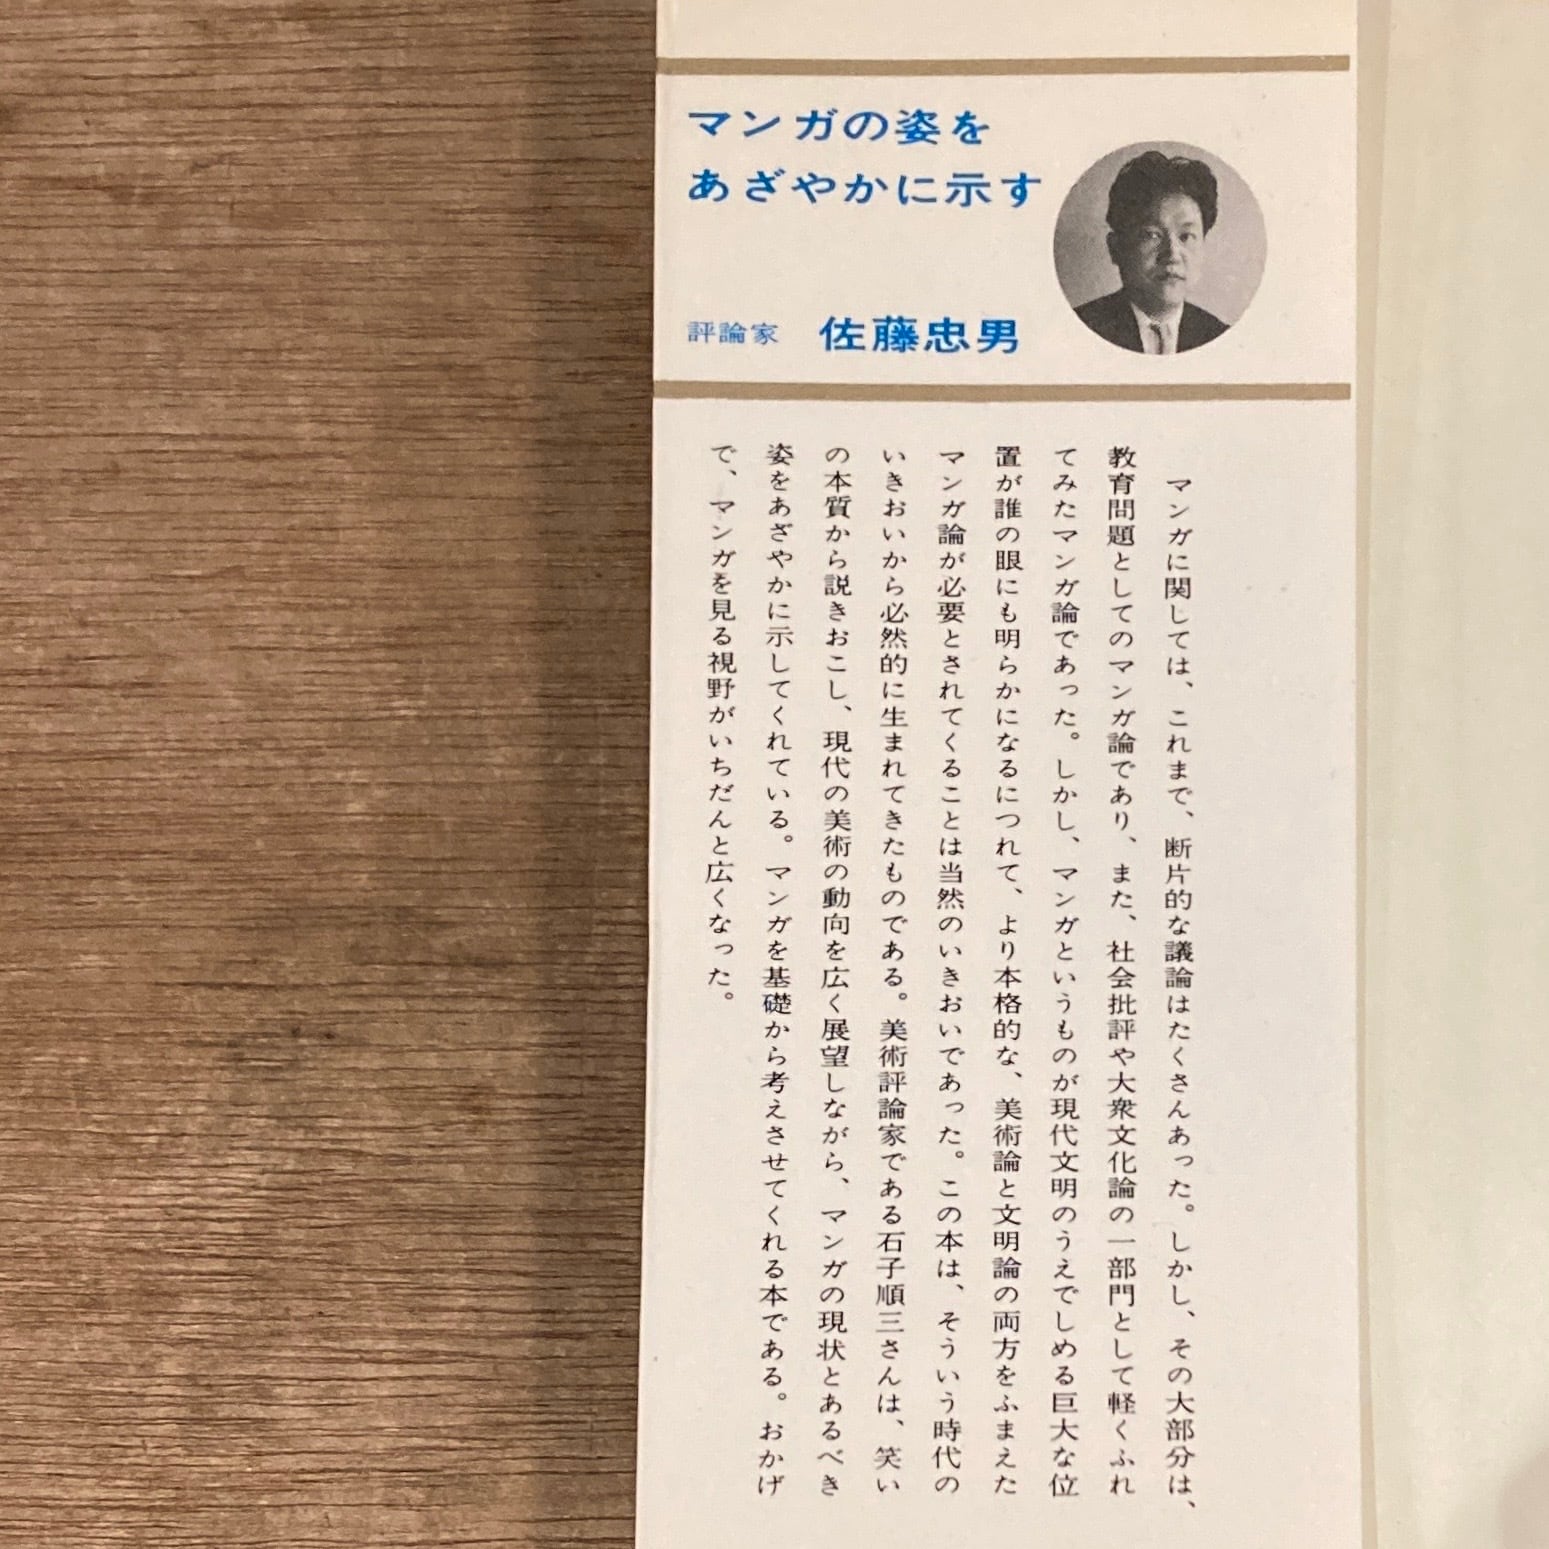 マンガの姿を
あざやかに示す
評論家　佐藤忠男
マンガに関しては、これまで、断片的な議論はたくさんあった。しかし、その大部分は、
教育問題としてのマンガ論であり、また、社会批評や大衆文化論の一部門として軽くふれ
てみたマンガ論であった。しかし、マンガというものが現代文明のうえでしめる巨大な位
置が誰の眼にも明らかになるにつれて、より本格的な、美術論と文明論の両方をふまえた
マンガ論が必要とされてくることは当然のいきおいであった。この本は、そういう時代の
いきおいから必然的に生まれてきたものである。美術評論家である石子順三さんは、笑い
の本質から説きおこし、現代の美術の動向を広く展望しながら、マンガの現状とあるべき
姿をあざやかに示してくれている。マンガを基礎から考えさせてくれる本である。おかげ
で、マンガを見る視野がいちだんと広くなった。